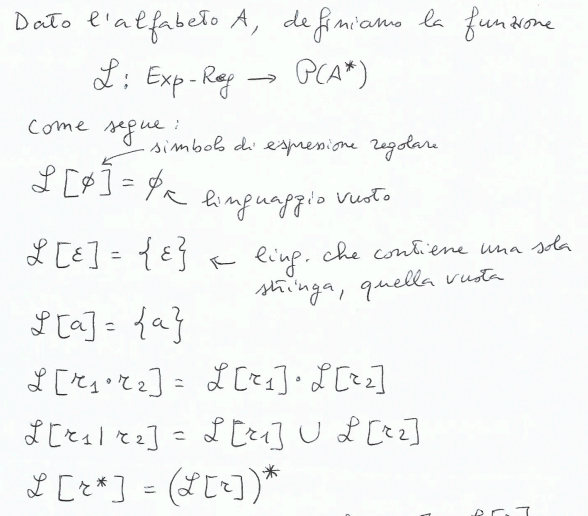 Dato l'alfabeto A, definiamo la funzione
ℒ: Exp-Reg → P(A*)
come segue:
simbolo di espressione regolare
ℒ[∅] = ∅ ← linguaggio vuoto
ℒ[ε] = {ε} ← ling. che contiene una sola
stringa, quella vuota
ℒ[a] = {a}
ℒ[r₁·r₂] = ℒ[r₁]·ℒ[r₂]
ℒ[r₁|r₂] = ℒ[r₁] ∪ ℒ[r₂]
ℒ[r*] = (ℒ[r])*